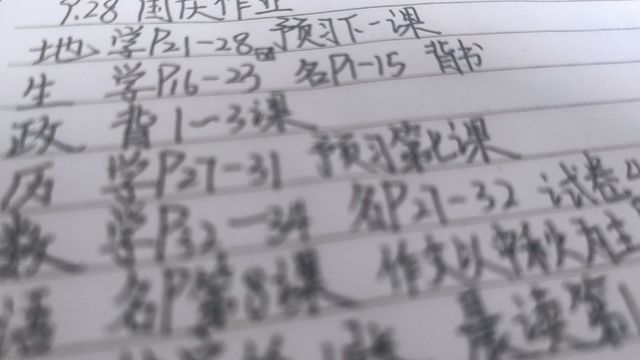 9.28 国庆作业
地 学P21-28 预习下一课
生 学P16-23 名P1-15 背书
政 背1-3课
历 学P27-31 预习第七课
数 学P32-34 名P27-32 试卷
语 名P第8课 作文以
晨读第1